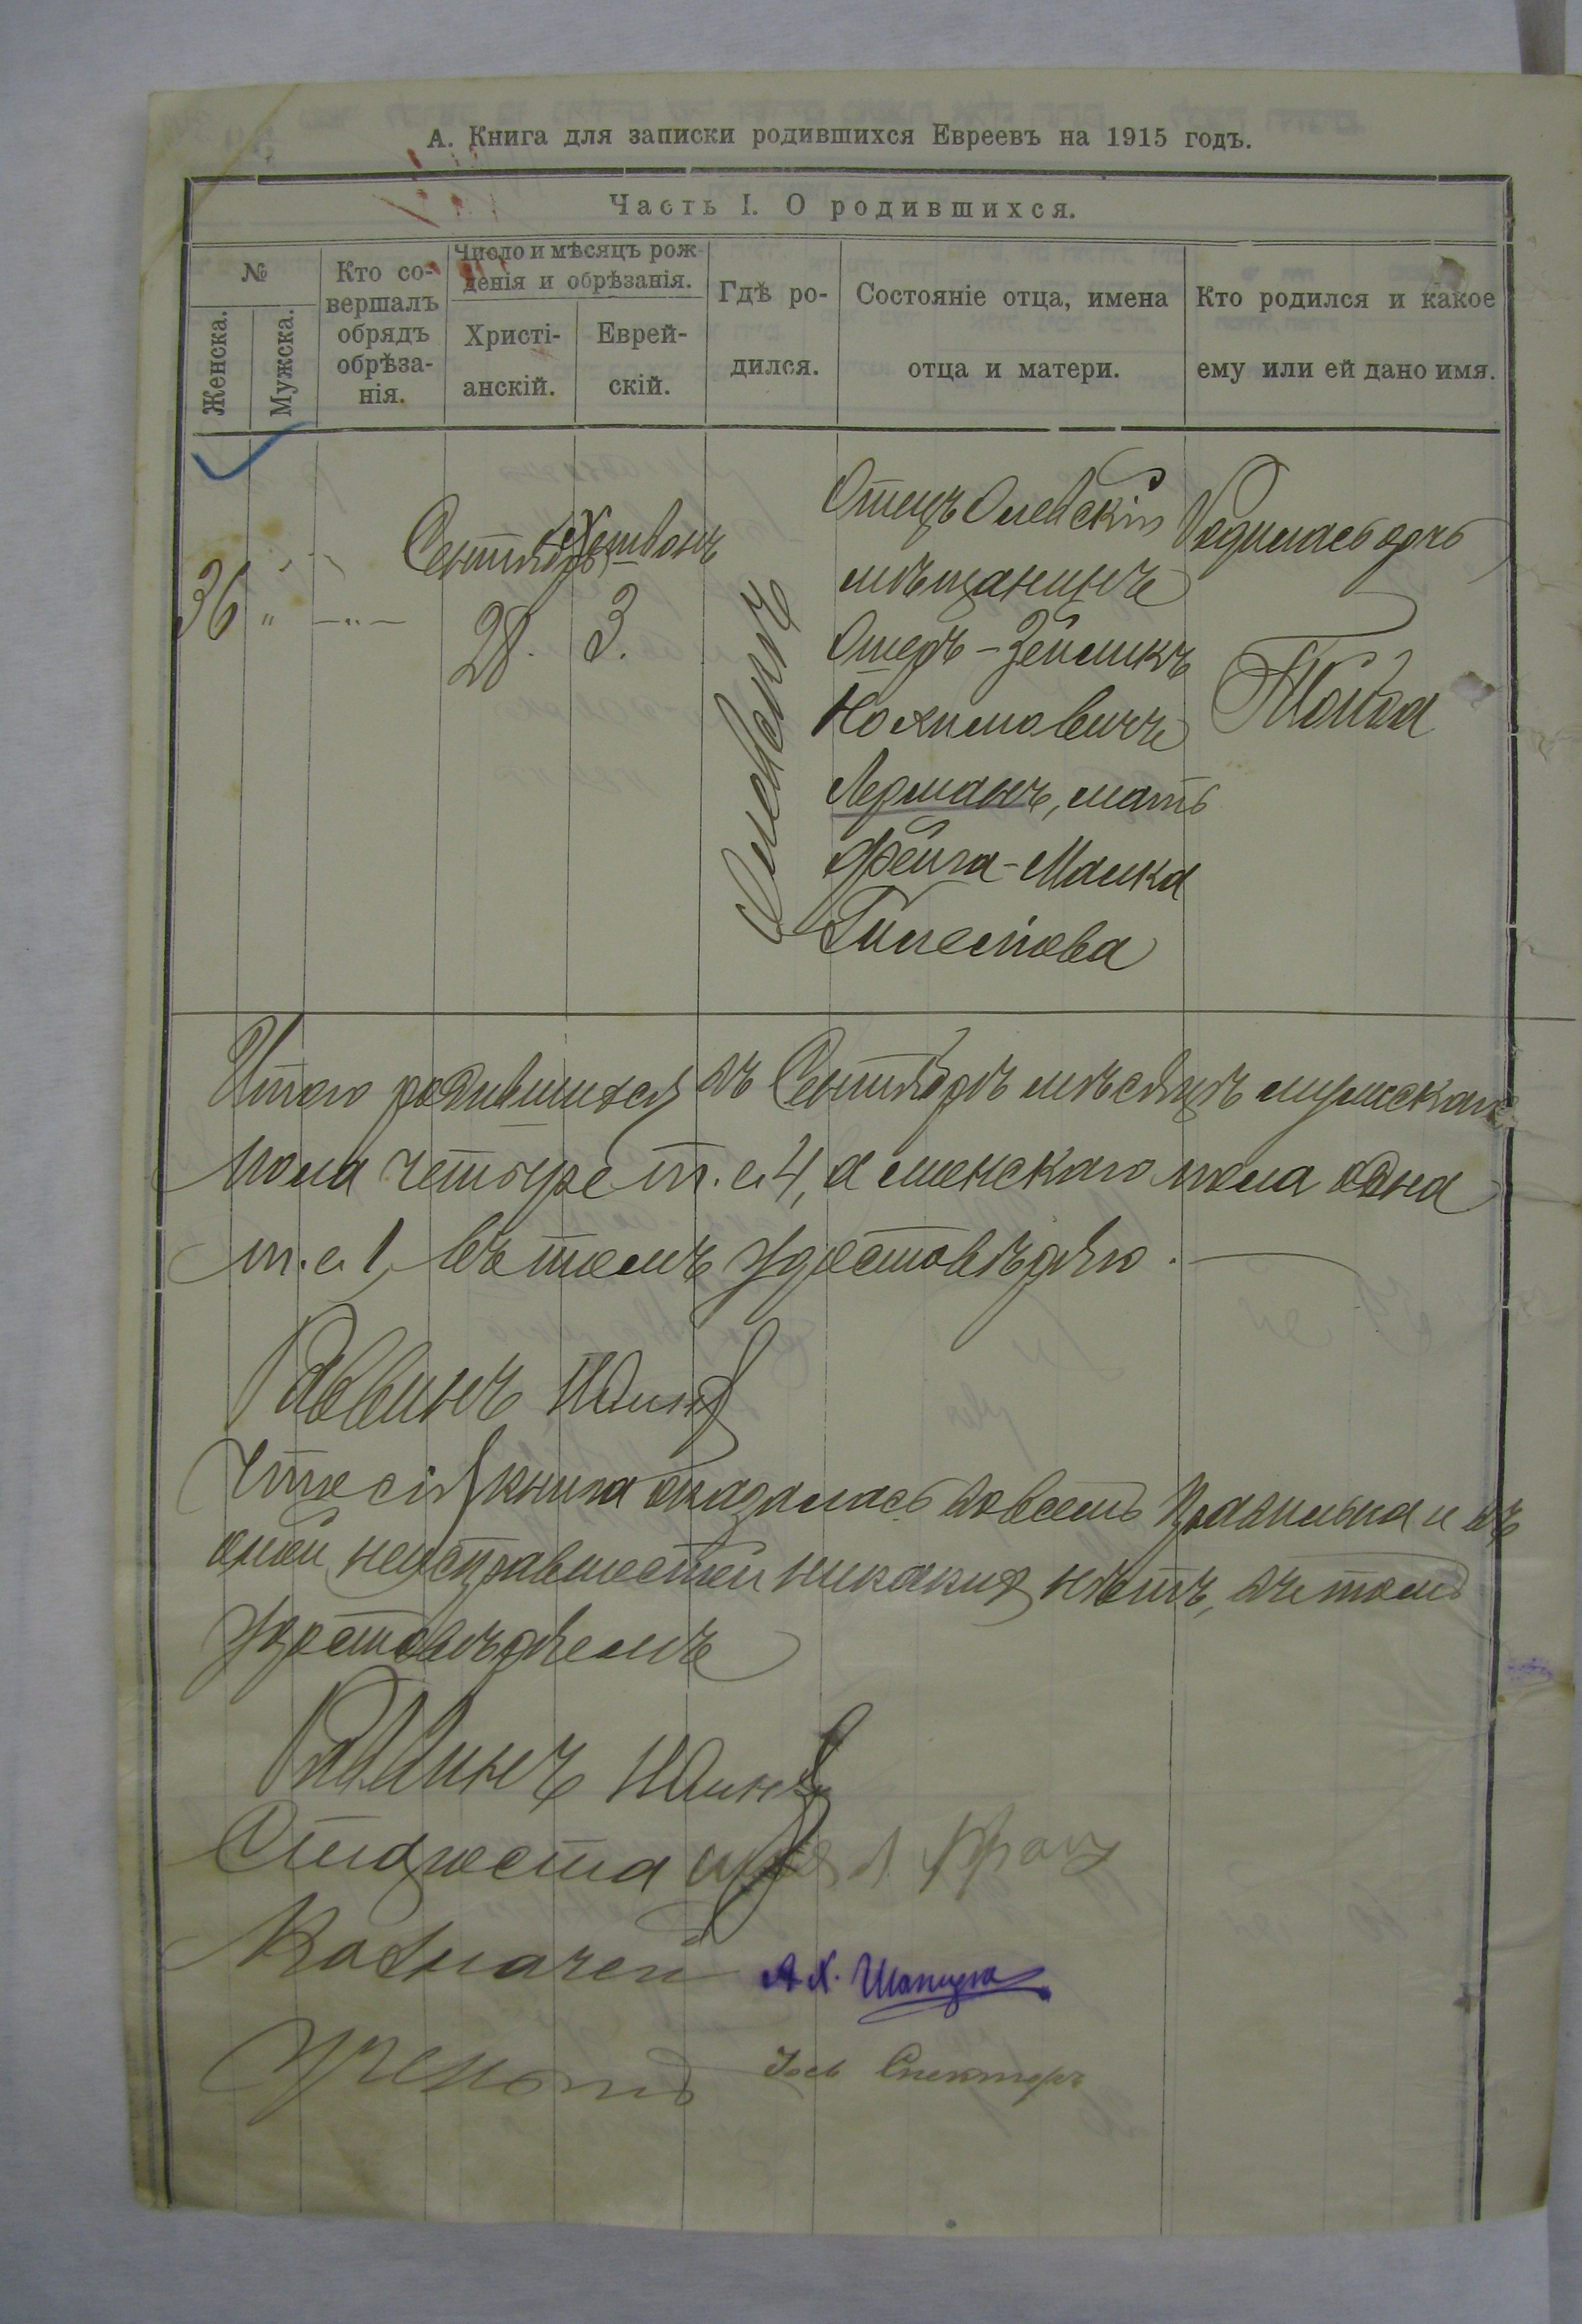 А. Книга для записки родившихся Евреевъ на 1915 годъ.
Часть I. О родившихся.
№
Женска.
Мужска.
Кто со-
вершалъ
обрядъ
обрѣза-
нія.
Число и мѣсяцъ рож
денія и обрѣзанія.
Христі-
анскій.
Еврей-
скій.
Гдѣ ро-
дился.
Состояніе отца, имена
отца и матери.
Кто родился и какое
ему или ей дано имя.
36 " —"—
Сентябрь
28.
Хешвонъ
3.
Олевскъ
Отецъ Олевскій
мѣщанинъ
Ошеръ-Зейликъ
Нохимовичъ
Лерманъ, мать
Фейга-Малка
Родилась дочь
Итого родившихся въ Сентябрѣ мѣсяцѣ мужскаго
пола четыре т. е. 4, а женскаго пола одна
т. е. 1, въ томъ удостовѣряю.
Раввинъ
Что сія книга оказалась во всемъ правильна и въ
оной неисправностей никакихъ нѣтъ, въ томъ
удостовѣряемъ
Раввинъ
Староста
Казначей А Х. Шапира
Ученый Спекторъ